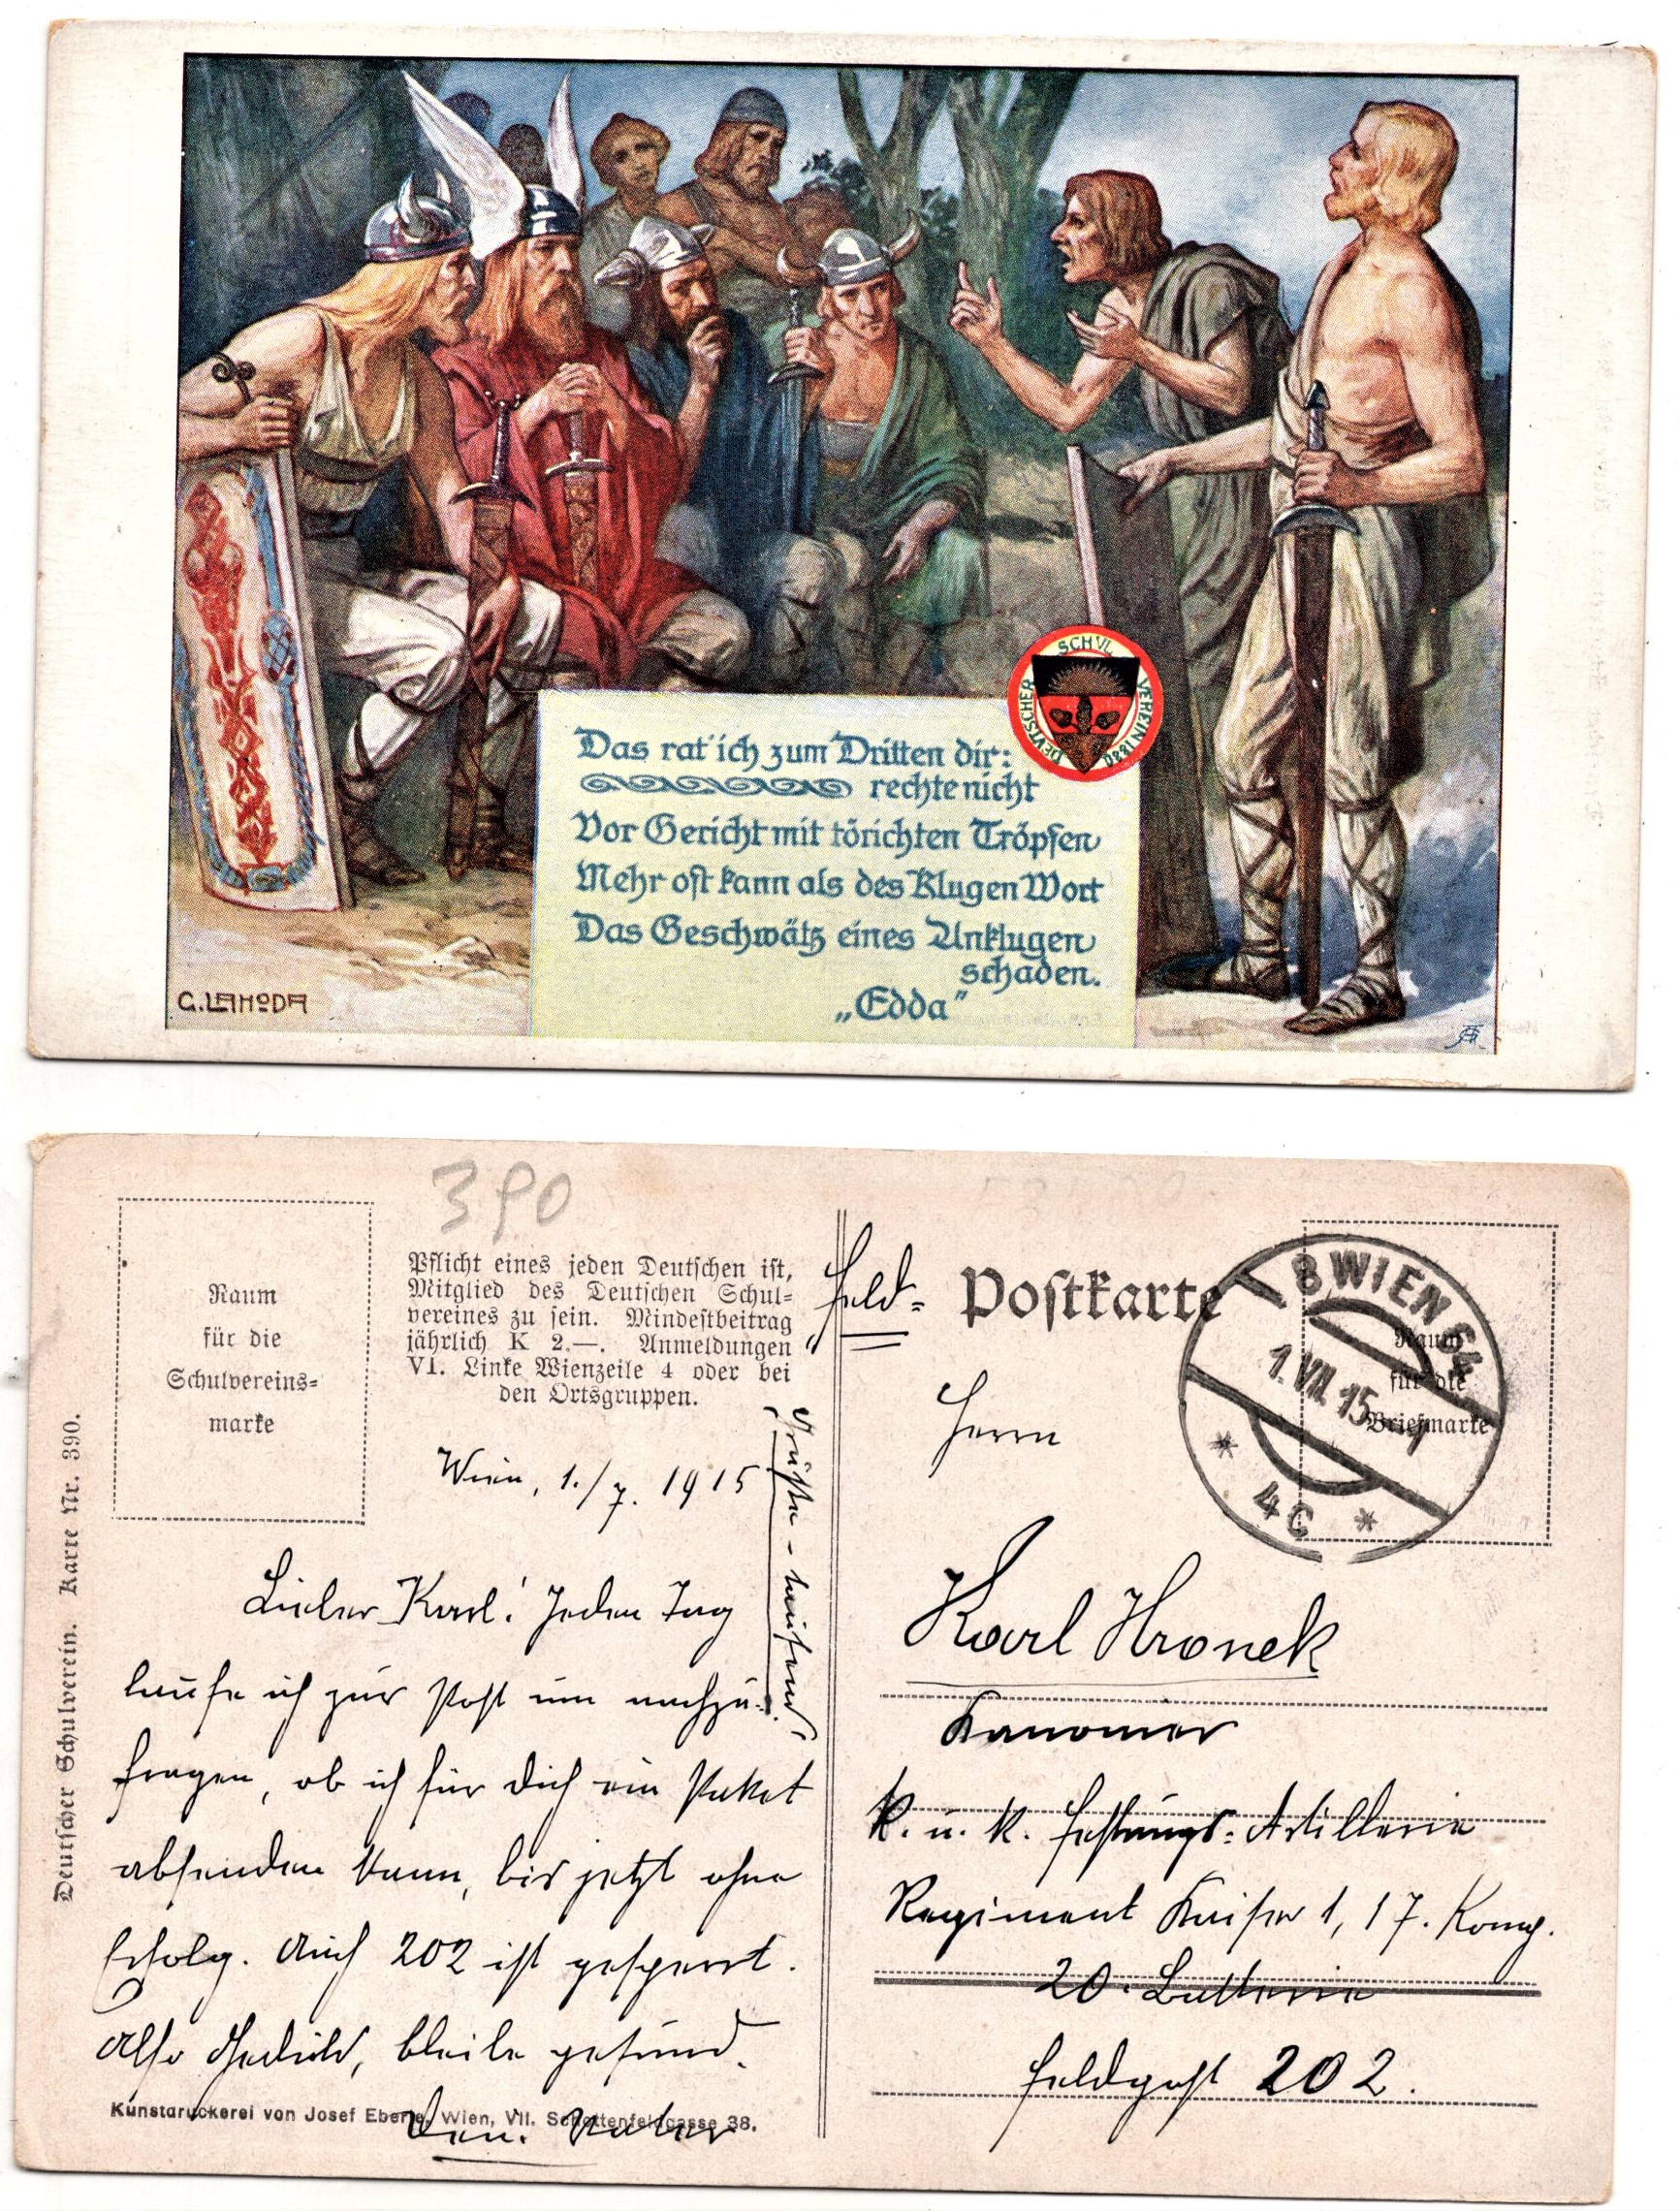 Das rat' ich zum Dritten dir:
rechte nicht
Vor Gericht mit törichten Tröpfen
Mehr oft kann als des Klugen Wort
Das Geschwätz eines Unklugen
schaden.
„Edda"
DEUTSCHER SCHUL VEREIN 1880
C. LAHODA
390
Raum
für die
Schulvereins-
marke
Pflicht eines jeden Deutschen ist,
Mitglied des Deutschen Schul-
vereines zu sein. Mindestbeitrag
jährlich K 2.—. Anmeldungen
VI. Linke Wienzeile 4 oder bei
den Ortsgruppen.
Deutscher Schulverein. Karte Nr. 390.
Wien, 1./7. 1915
Lieber Karl! Jeden Tag
laufe ich zur Post um nachzu-
fragen, ob ich für Dich ein Paket
absenden kann, bis jetzt ohne
Erfolg. Auch 202 ist gesperrt.
Also Geduld, bleibe gesund.
Dein Vater
Kunstdruckerei von Josef Eberle, Wien, VII. Schottenfeldgasse 38.
Feld-
Postkarte
Raum
für die
Briefmarke
8 WIEN 64
1.VII.15
* 4c *
Herrn
Karl Hronek
Kanonier
k. u. k. Festungs-Artillerie
Regiment Kaiser 1, 17. Komp.
20. Batterie
Feldpost 202.